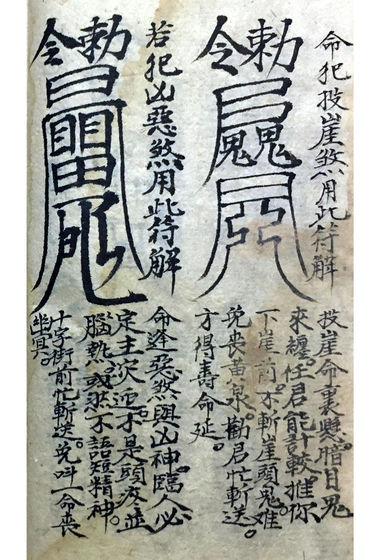 命犯投崖煞用此符解
勅令
投崖命裏鬼
來纏。任君能計較推你
下崖前。不斬崖頭鬼。难
免丧黃泉。勸君忙斬送。
方得壽命延。
若犯凶惡煞用此符解
勅令
命逢惡煞與凶神。臨人必
定主灾迍。不是頭疼並
腦熱。或然不語短精神。
十字街前忙斬送。免叫一命丧
幽冥。